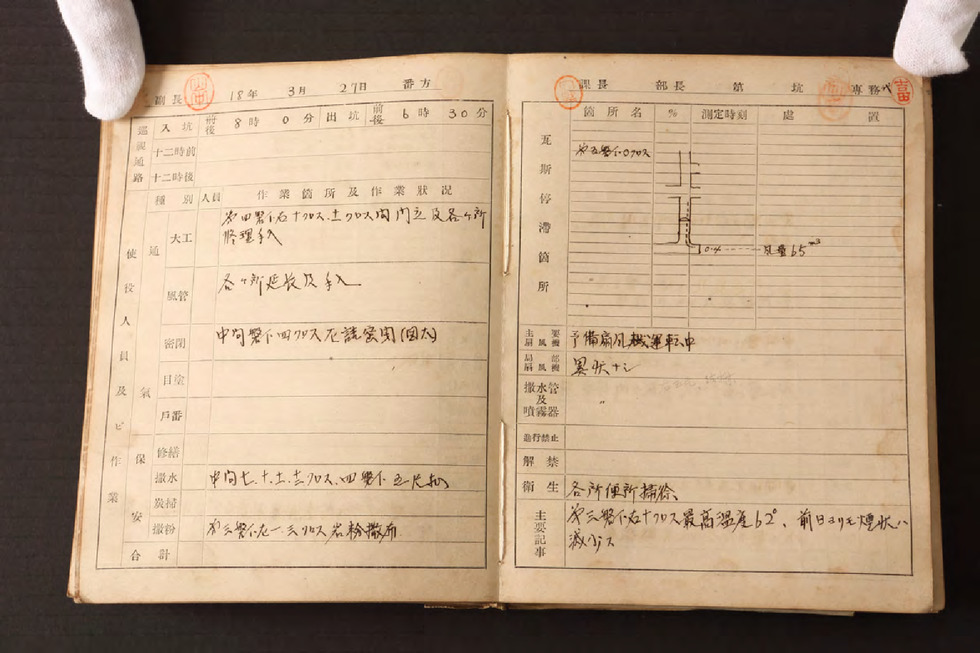 副長 18年 3月 27日 番方
巡視通路 入坑 前後 8時 0分 出坑 前後 6時 30分
十二時前
十二時後
使役人員及ビ作業
種別 人員 作業箇所及作業状況
通気
大工 右十クロス、十一クロス間 及各ヶ所
修理手入
風管 各ヶ所延長及手入
密閉 中間 四クロス
目塗
戸番
保安
修繕
撒水 中間七、十、十一、十三クロス、四
炭掃
撒粉 第三 一、三クロス岩粉撒布
合計
課長 部長 第 坑 専務
瓦斯停滞箇所
箇所名 % 測定時刻 処置
0クロス
0.4 風量65
主要扇風機 予備扇風機運転中
局部扇風機 異状ナシ
撒水管及噴霧器 〃
進行禁止
解禁
衛生 各所便所掃除
主要記事 第三 右十クロス最高温度62°、前日ヨリモ煙状ハ
減少ス